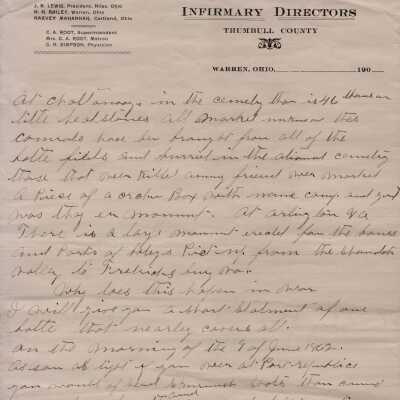 J. R. LEWIS, President, Niles, Ohio
H. H. BAILEY, Warren, Ohio
HARVEY MAHANNAH, Cortland, Ohio
C. A. ROOT, Superintendent
Mrs. C. A. ROOT, Matron
O. H. SIMPSON, Physician
INFIRMARY DIRECTORS
TRUMBULL COUNTY
WARREN, OHIO, 190
At Chattanooga in the cemety thar is 46 thousan
little headstones all marked unknow thes
comrads have ben brought from all of the
battle fields and burried in the national cemetry
those that wer killed among friend wer marked
a Piese of a cracker Box with name comp and regt
was they er monument. At arlington Va
There is a large monument erected from the bones
and Parts of bodys Pict up from the Shanadoh
valley to Fredricksburg Va.
Why does this happen in war
I will give you a short Statment of one
battle that nearly covers all.
on the morning of the 9 of June 1862
as soon as light if you wer at Port republic
you would of